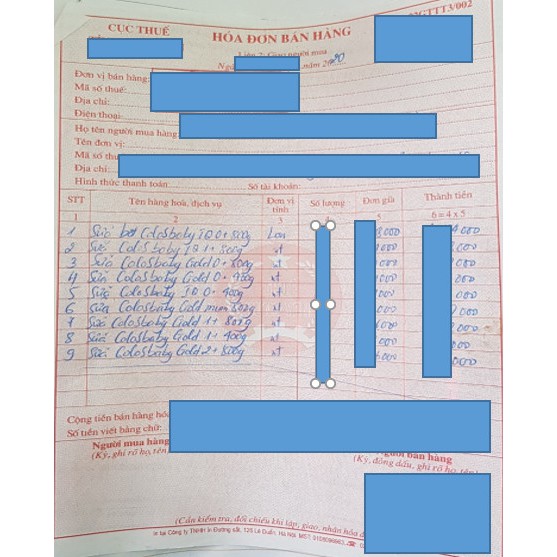 CỤC THUẾ
HÓA ĐƠN BÁN HÀNG
GTTT3/002
Liên 2: Giao người mua
năm 2020
Đơn vị bán hàng:
Mã số thuế:
Địa chỉ:
Điện thoại:
Họ tên người mua hàng:
Tên đơn vị:
Mã số thuế
Địa chỉ:
Hình thức thanh toán: Số tài khoản:
STT Tên hàng hoá, dịch vụ Đơn vị tính Số lượng Đơn giá Thành tiền
1 2 3 4 5 6 = 4 x 5
1 Sữa bột Colosbaby IQ 0+ 800g Lon 000 000
2 Sữa Colosbaby IQ 1+ 800g nt 000 000
3 Sữa Colosbaby Gold 0+ 800g nt 000 000
4 Sữa Colosbaby Gold 0+ 400g nt 000 000
5 Sữa Colosbaby IQ 0+ 400g nt 000 000
6 Sữa Colosbaby Gold mum 800g nt 000 000
7 Sữa Colosbaby Gold 1+ 800g nt 000 000
8 Sữa Colosbaby Gold 1+ 400g nt 000 000
9 Sữa Colosbaby Gold 2+ 800g nt 000 000
Cộng tiền bán hàng hó
Số tiền viết bằng chữ:
Người mua hàng Người bán hàng
(Ký, ghi rõ họ, tên) (Ký, đóng dấu, ghi rõ họ, tên)
(Cần kiểm tra, đối chiếu khi lập, giao, nhận hóa đ
In tại Công ty TNHH In Đường sắt, 126 Lê Duẩn, Hà Nội. MST: